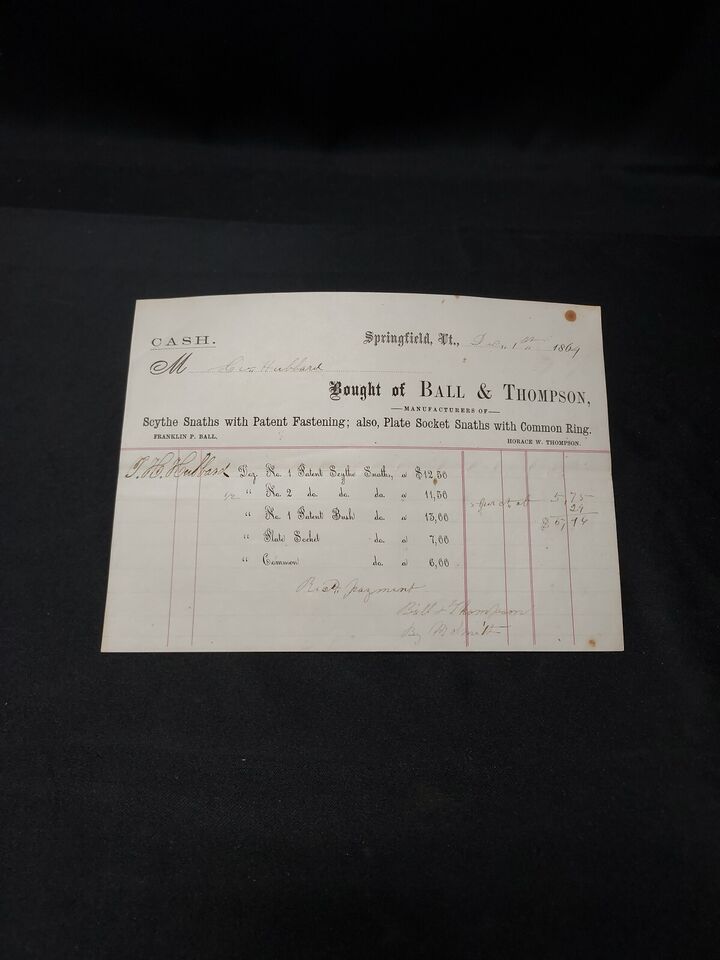 CASH.
Springfield, Vt., 1st 1869
M Hubbard
Bought of BALL & THOMPSON,
—MANUFACTURERS OF—
Scythe Snaths with Patent Fastening; also, Plate Socket Snaths with Common Ring.
FRANKLIN P. BALL. HORACE W. THOMPSON.
T. H. Hubbard Doz No. 1 Patent Scythe Snaths, a $12,50
1/2 " No. 2 do. do. do. a 11,50 5,75
" No. 1 Patent Bush do. a 13,00 29
" Plate Socket do. a 7,00
" Common do. a 6,00
Recd. payment
Ball & Thompson
By Smith